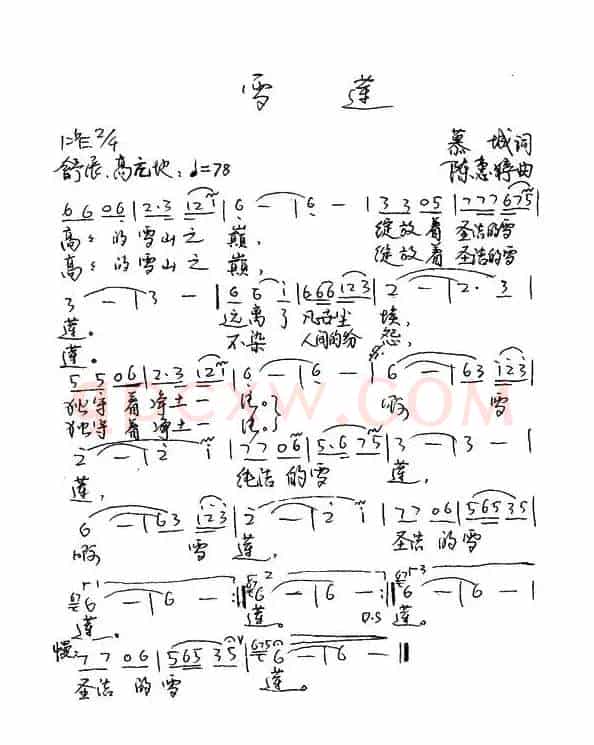 雪 莲
1=E 2/4
慕 城词
舒展、高亢地 ♩=78
陈惠婷曲
6 6 0 6 | 2·3 1 2 i | 6 — | 6 — | 3 3 0 5 | 7 7 7 6 7 5 |
高高的雪山之 巅, 绽放着 圣洁的雪
高高的雪山之 巅, 绽放着 圣洁的雪
3 — | 3 — | 6 6 i | 6 6 6 1 2 3 | 2 — | 2· 3 |
莲。 远离了 凡 尘 埃,
莲。 不染 人间的纷 怨,
5 5 0 6 | 2·3 1 2 i | 6 — | 6 — | 6 — | 6 3 i 2 3 |
独守着净土一 啊, 雪
独守着净土一
2 — | 2 i | 7 7 0 6 | 5·6 7 5 | 3 — | 3 — |
莲, 纯洁的雪 莲,
6 — | 6 3 i 2 3 | 2 — | 2 i | 7 7 0 6 | 5 6 5 3 5 |
啊, 雪 莲, 圣洁的雪
6 — | 6 — :‖ 6 — | 6 — :‖ 6 — | 6 — |
莲。 莲。 D.S 莲。
慢 7 7 0 6 | 5 6 5 3 5 | 6 — | 6 — ‖
圣洁的雪 莲。